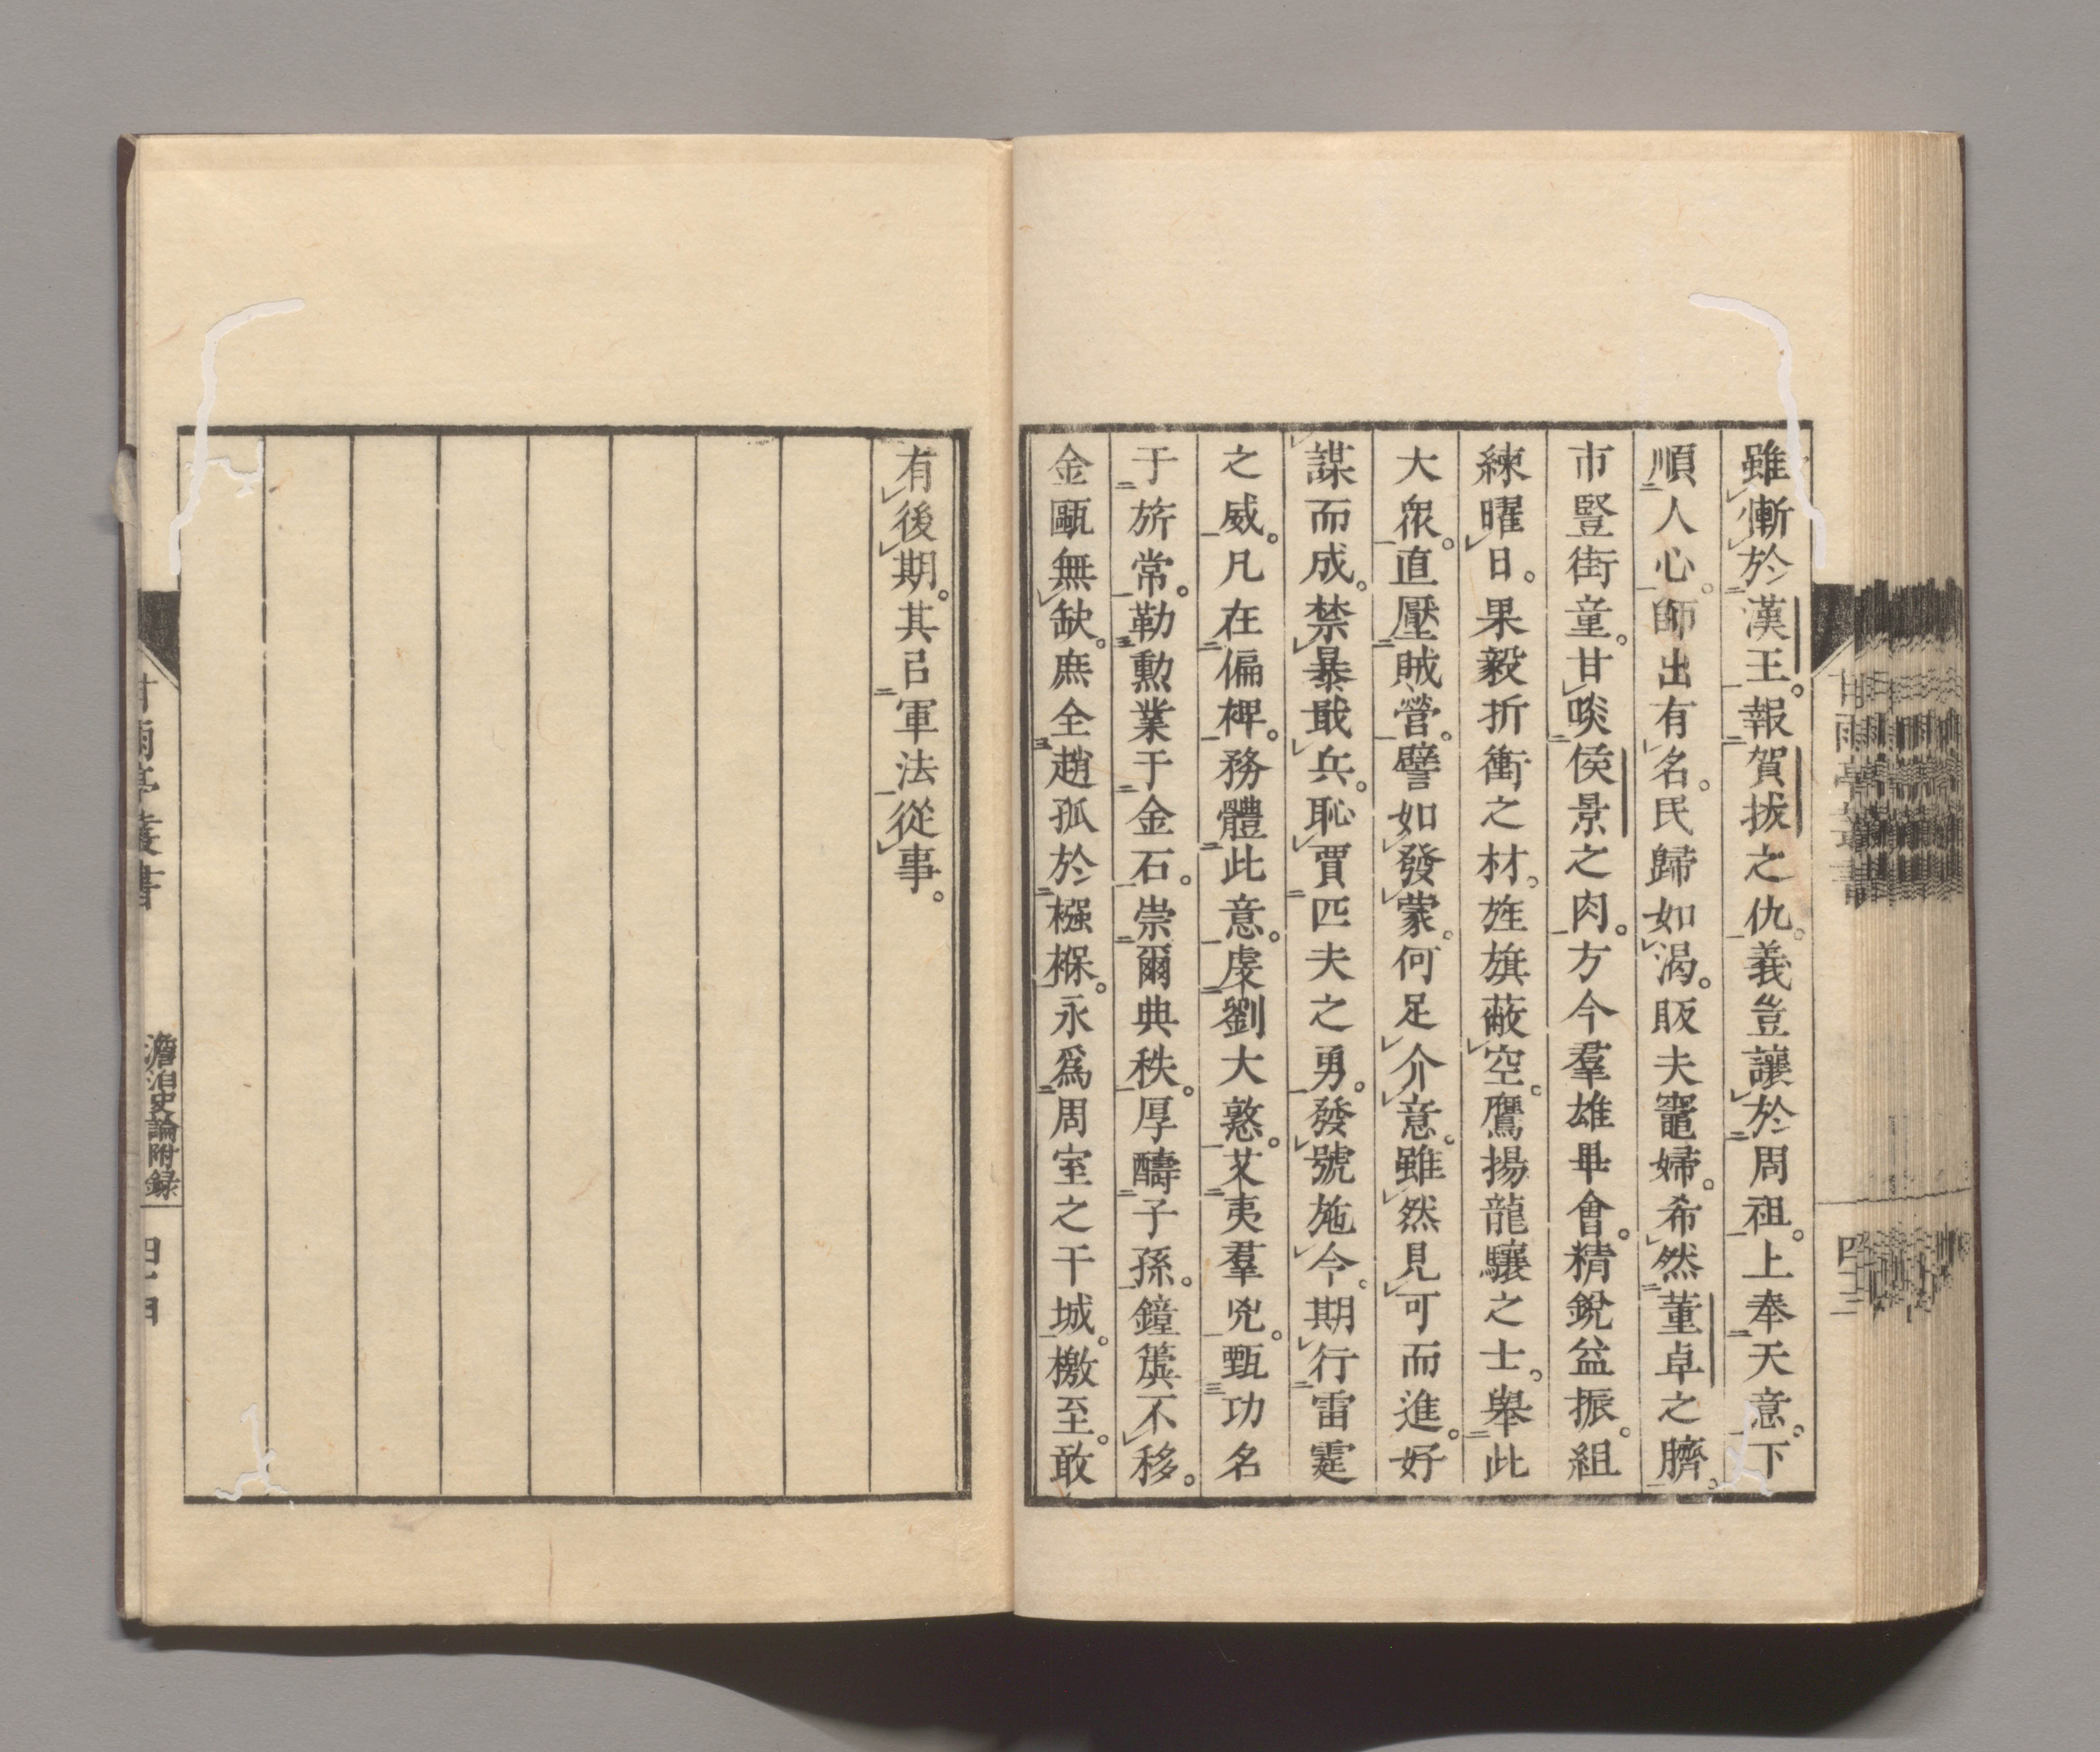 雖慚於漢王。報賀拔之仇。義豈讓於周祖。上奉天意。下
順人心。師出有名。民歸如渴。販夫竈婦。希然董卓之臍。
市豎街童。甘啖侯景之肉。方今羣雄畢會。精銳益振。組
練曜日。果毅折衝之材。旌旗蔽空。鷹揚龍驤之士。舉此
大眾。直壓賊營。譬如發蒙。何足介意。雖然見可而進。好
謀而成。禁暴戢兵。恥賈匹夫之勇。發號施令。期行雷霆
之威。凡在偏裨。務體此意。虔劉大憝。艾夷羣兇。甄功名
于旂常。勒勲業于金石。崇爾典秩。厚疇子孫。鐘簴不移。
金甌無缺。庶全趙孤於襁褓。永爲周室之干城。檄至。敢
有後期。其㠯軍法從事。
甘雨亭叢書
澹泊史論附録
甘雨亭叢書
四十三